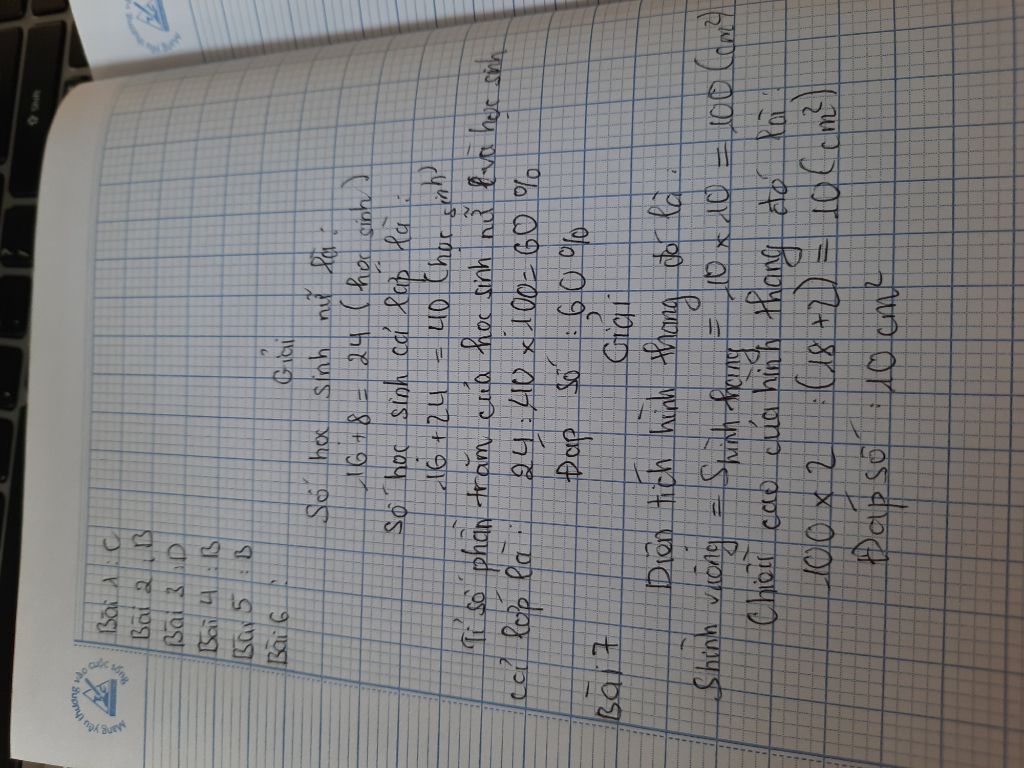 Mang yêu thương vào cuộc sống
Bài 1 : C
Bài 2 : B
Bài 3 : D
Bài 4 : B
Bài 5 : B
Bài 6 :
Giải
Số học sinh nữ là :
16 + 8 = 24 ( học sinh )
Số học sinh cả lớp là :
16 + 24 = 40 ( học sinh )
Tỉ số phần trăm của học sinh nữ và học sinh
cả lớp là :
24 : 40 x 100 = 60 %
Đáp số : 60 %
Bài 7
Giải
Diện tích hình thang đó là :
Shình vuông = Shình thang = 10 x 10 = 100 (cm²)
Chiều cao của hình thang đó là :
100 x 2 : (18 + 2) = 10 (cm²)
Đáp số : 10 cm²